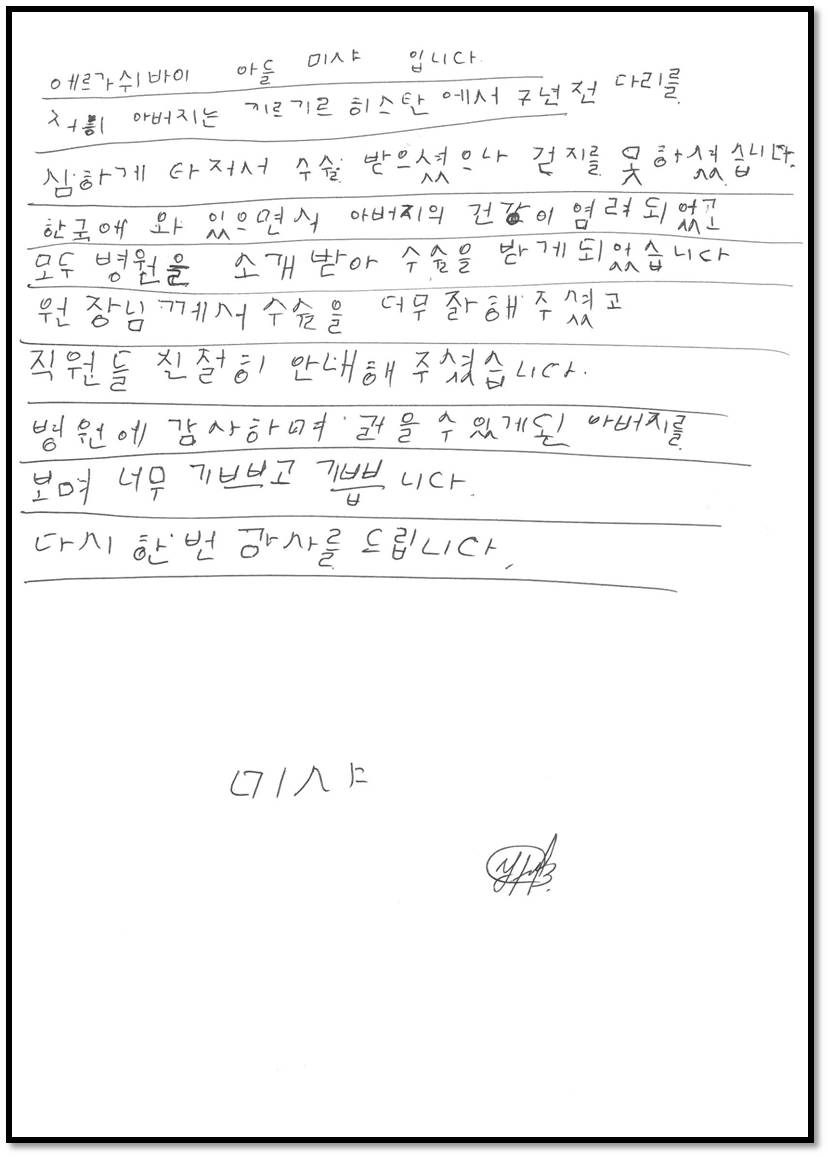 에르가쉬바이 아들 미샤 입니다.
저희 아버지는 키르기르 히스탄에서 7년전 다리를
심하게 다저서 수술 받으셨으나 걷지를 못하셨습니다.
한국애 와 있으면서 아버지의 건강이 염려되었고
모두 병원을 소개받아 수술을 받게되었습니다
원장님께서 수술을 너무 잘해주셨고
직원들 친절히 안내해 주셨습니다.
병원에 감사하며 걸을 수 있게된 아버지를
보며 너무 기쁘고 기쁩니다.
다시 한번 감사를 드립니다.
미샤